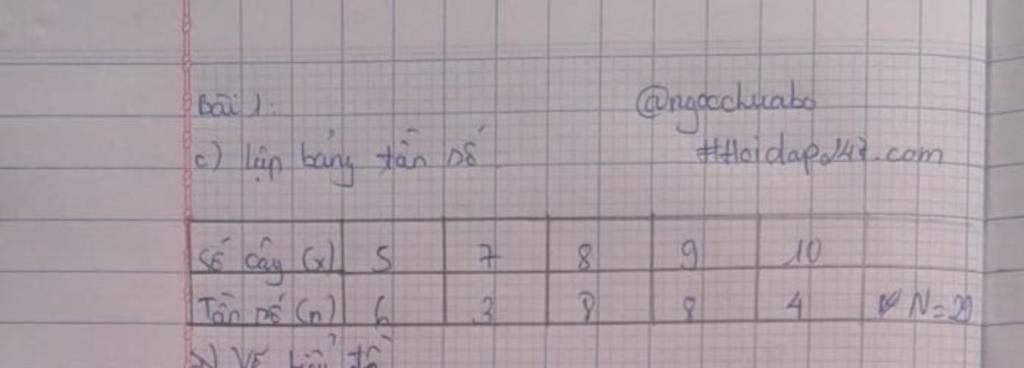 Bài 1:
@ngocchuabo
c) lập bảng tần số
#Hoidap247.com
Số cây (x) 5 7 8 9 10
Tần số (n) 6 3 8 8 4 N=29
b) Vẽ biểu đồ